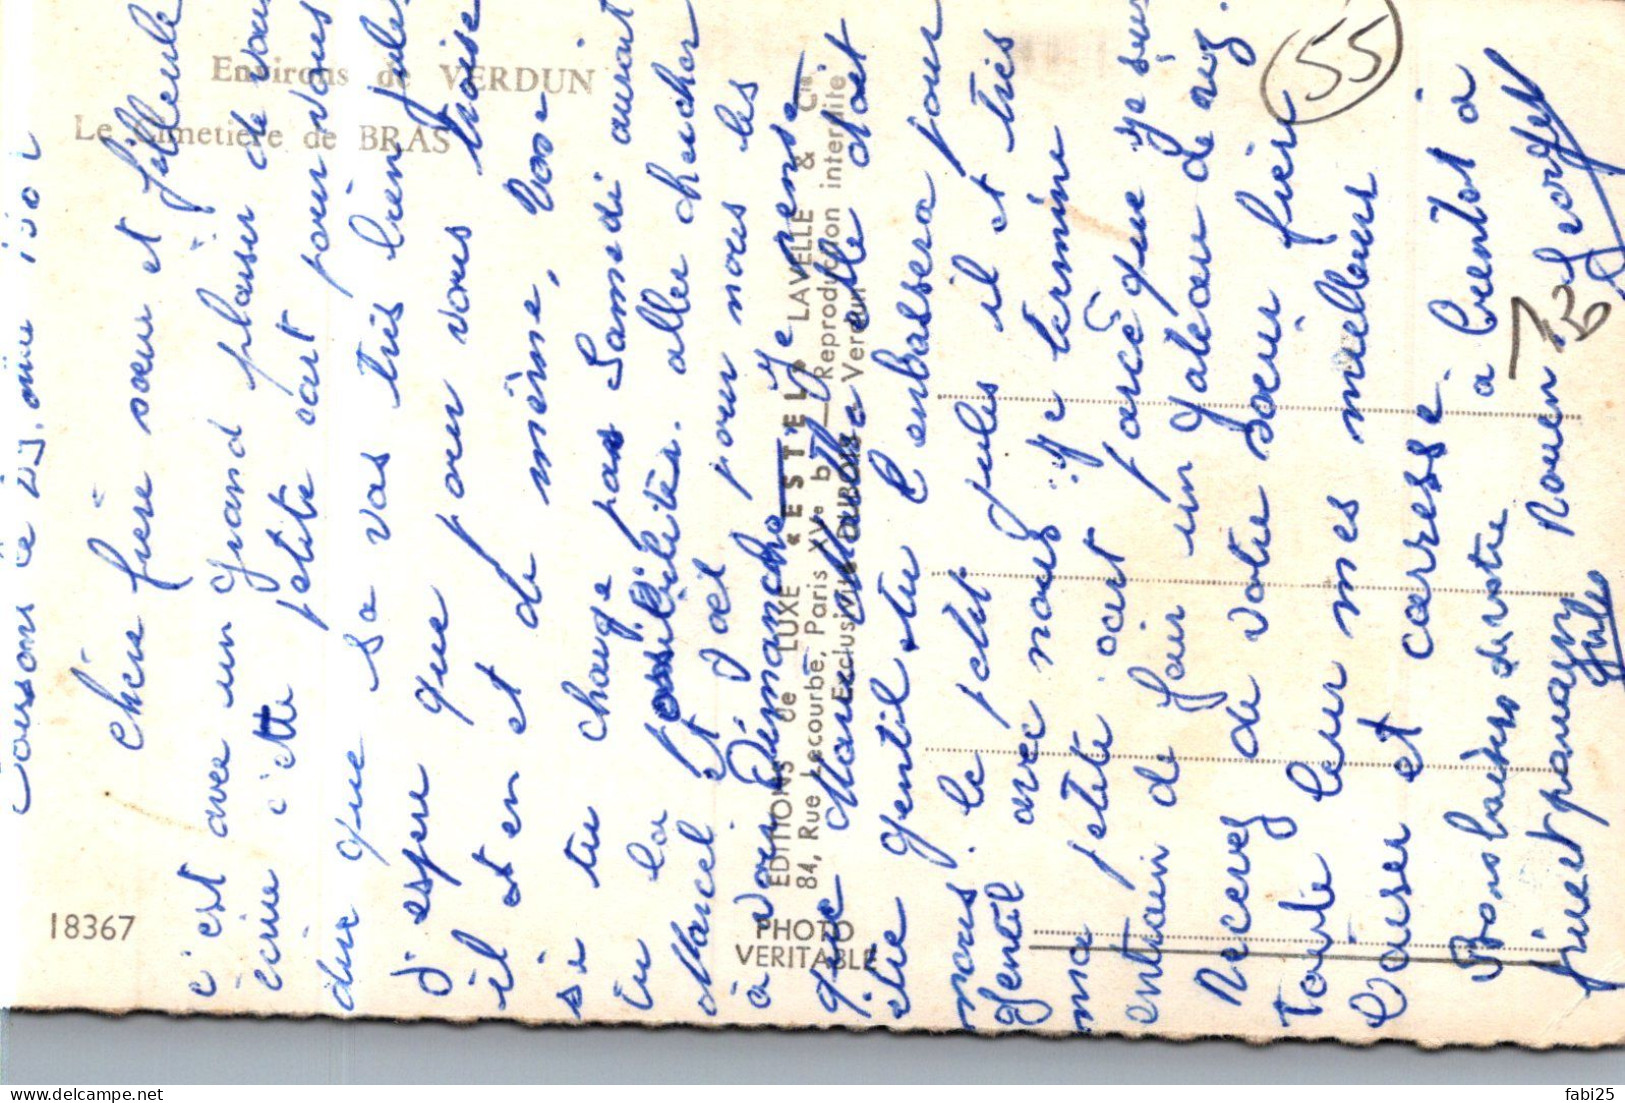 Environs de VERDUN
Le Cimetière de BRAS
18367
EDITIONS de LUXE « ESTEL » LAVELLE & Cie
84, Rue Lecourbe, Paris XVe b Reproduction interdite
Exclusivité DUBOIS Verdun
PHOTO
VERITABLE
55
chère frère sœur et filleule
c'est avec un grand plaisir de vous
écrire cette petite cart pour vous
dire que sa vas très bien Jules
j'espere que pour vous
il et en et de même,
si tu change pas Samedi
tu la posibilitée. aller chercher
Marcel. Et pour nous les
à Dimanche je pense
que Marcelle doit
etre gentil tu l'enbalsera pour
nous. le petit jules il et très
Gentil avec nous je termine
ma petite cart parce que je suis
entrain de fair un gateau de riz.
Recevez de votre sœur frère
toute leur mes meilleurs
baiser et caresse. à bientot à
Bons baisers de votre à Rouen Georges
Jules
fabi25